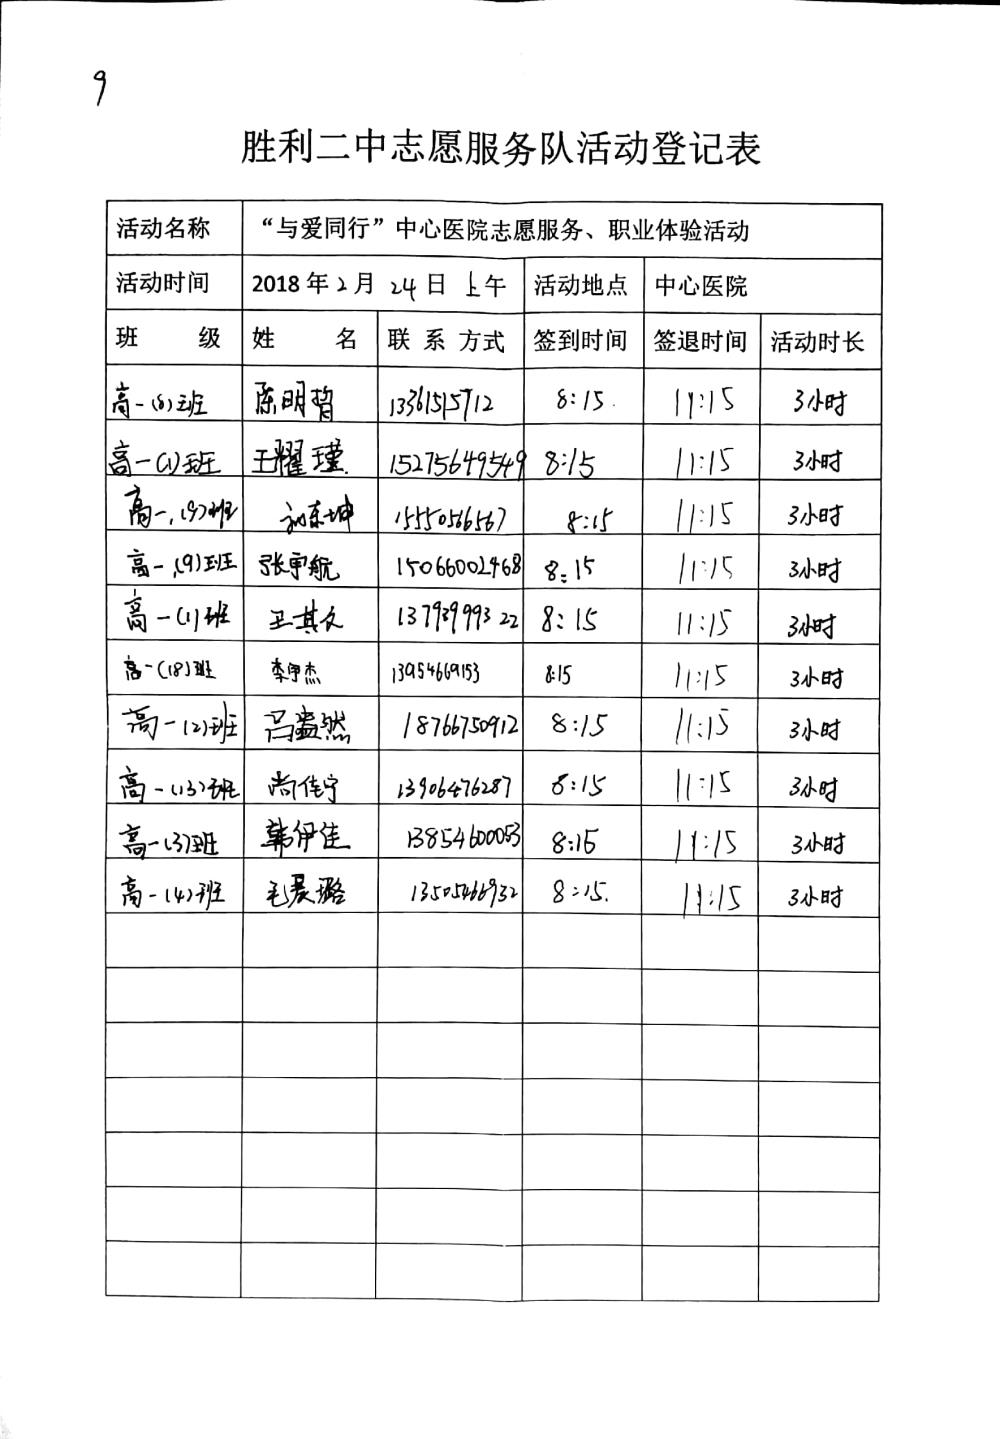 9
胜利二中志愿服务队活动登记表
活动名称 “与爱同行”中心医院志愿服务、职业体验活动
活动时间 2018年2月24日上午 活动地点 中心医院
班级 姓名 联系方式 签到时间 签退时间 活动时长
高一(8)班 陈明哲 13361515712 8:15 11:15 3小时
高一(1)班 王耀瑾 15275649549 8:15 11:15 3小时
高一(9)班 刘东坤 15550566567 8:15 11:15 3小时
高一(9)班 张宇航 15066002468 8:15 11:15 3小时
高一(1)班 王其久 13793999322 8:15 11:15 3小时
高一(18)班 李宇杰 13954669153 8:15 11:15 3小时
高一(2)班 吕孟然 18766750912 8:15 11:15 3小时
高一(13)班 尚佳宁 13906476287 8:15 11:15 3小时
高一(3)班 韩伊佳 13854600053 8:15 11:15 3小时
高一(4)班 毛晨璐 13505466932 8:15 11:15 3小时